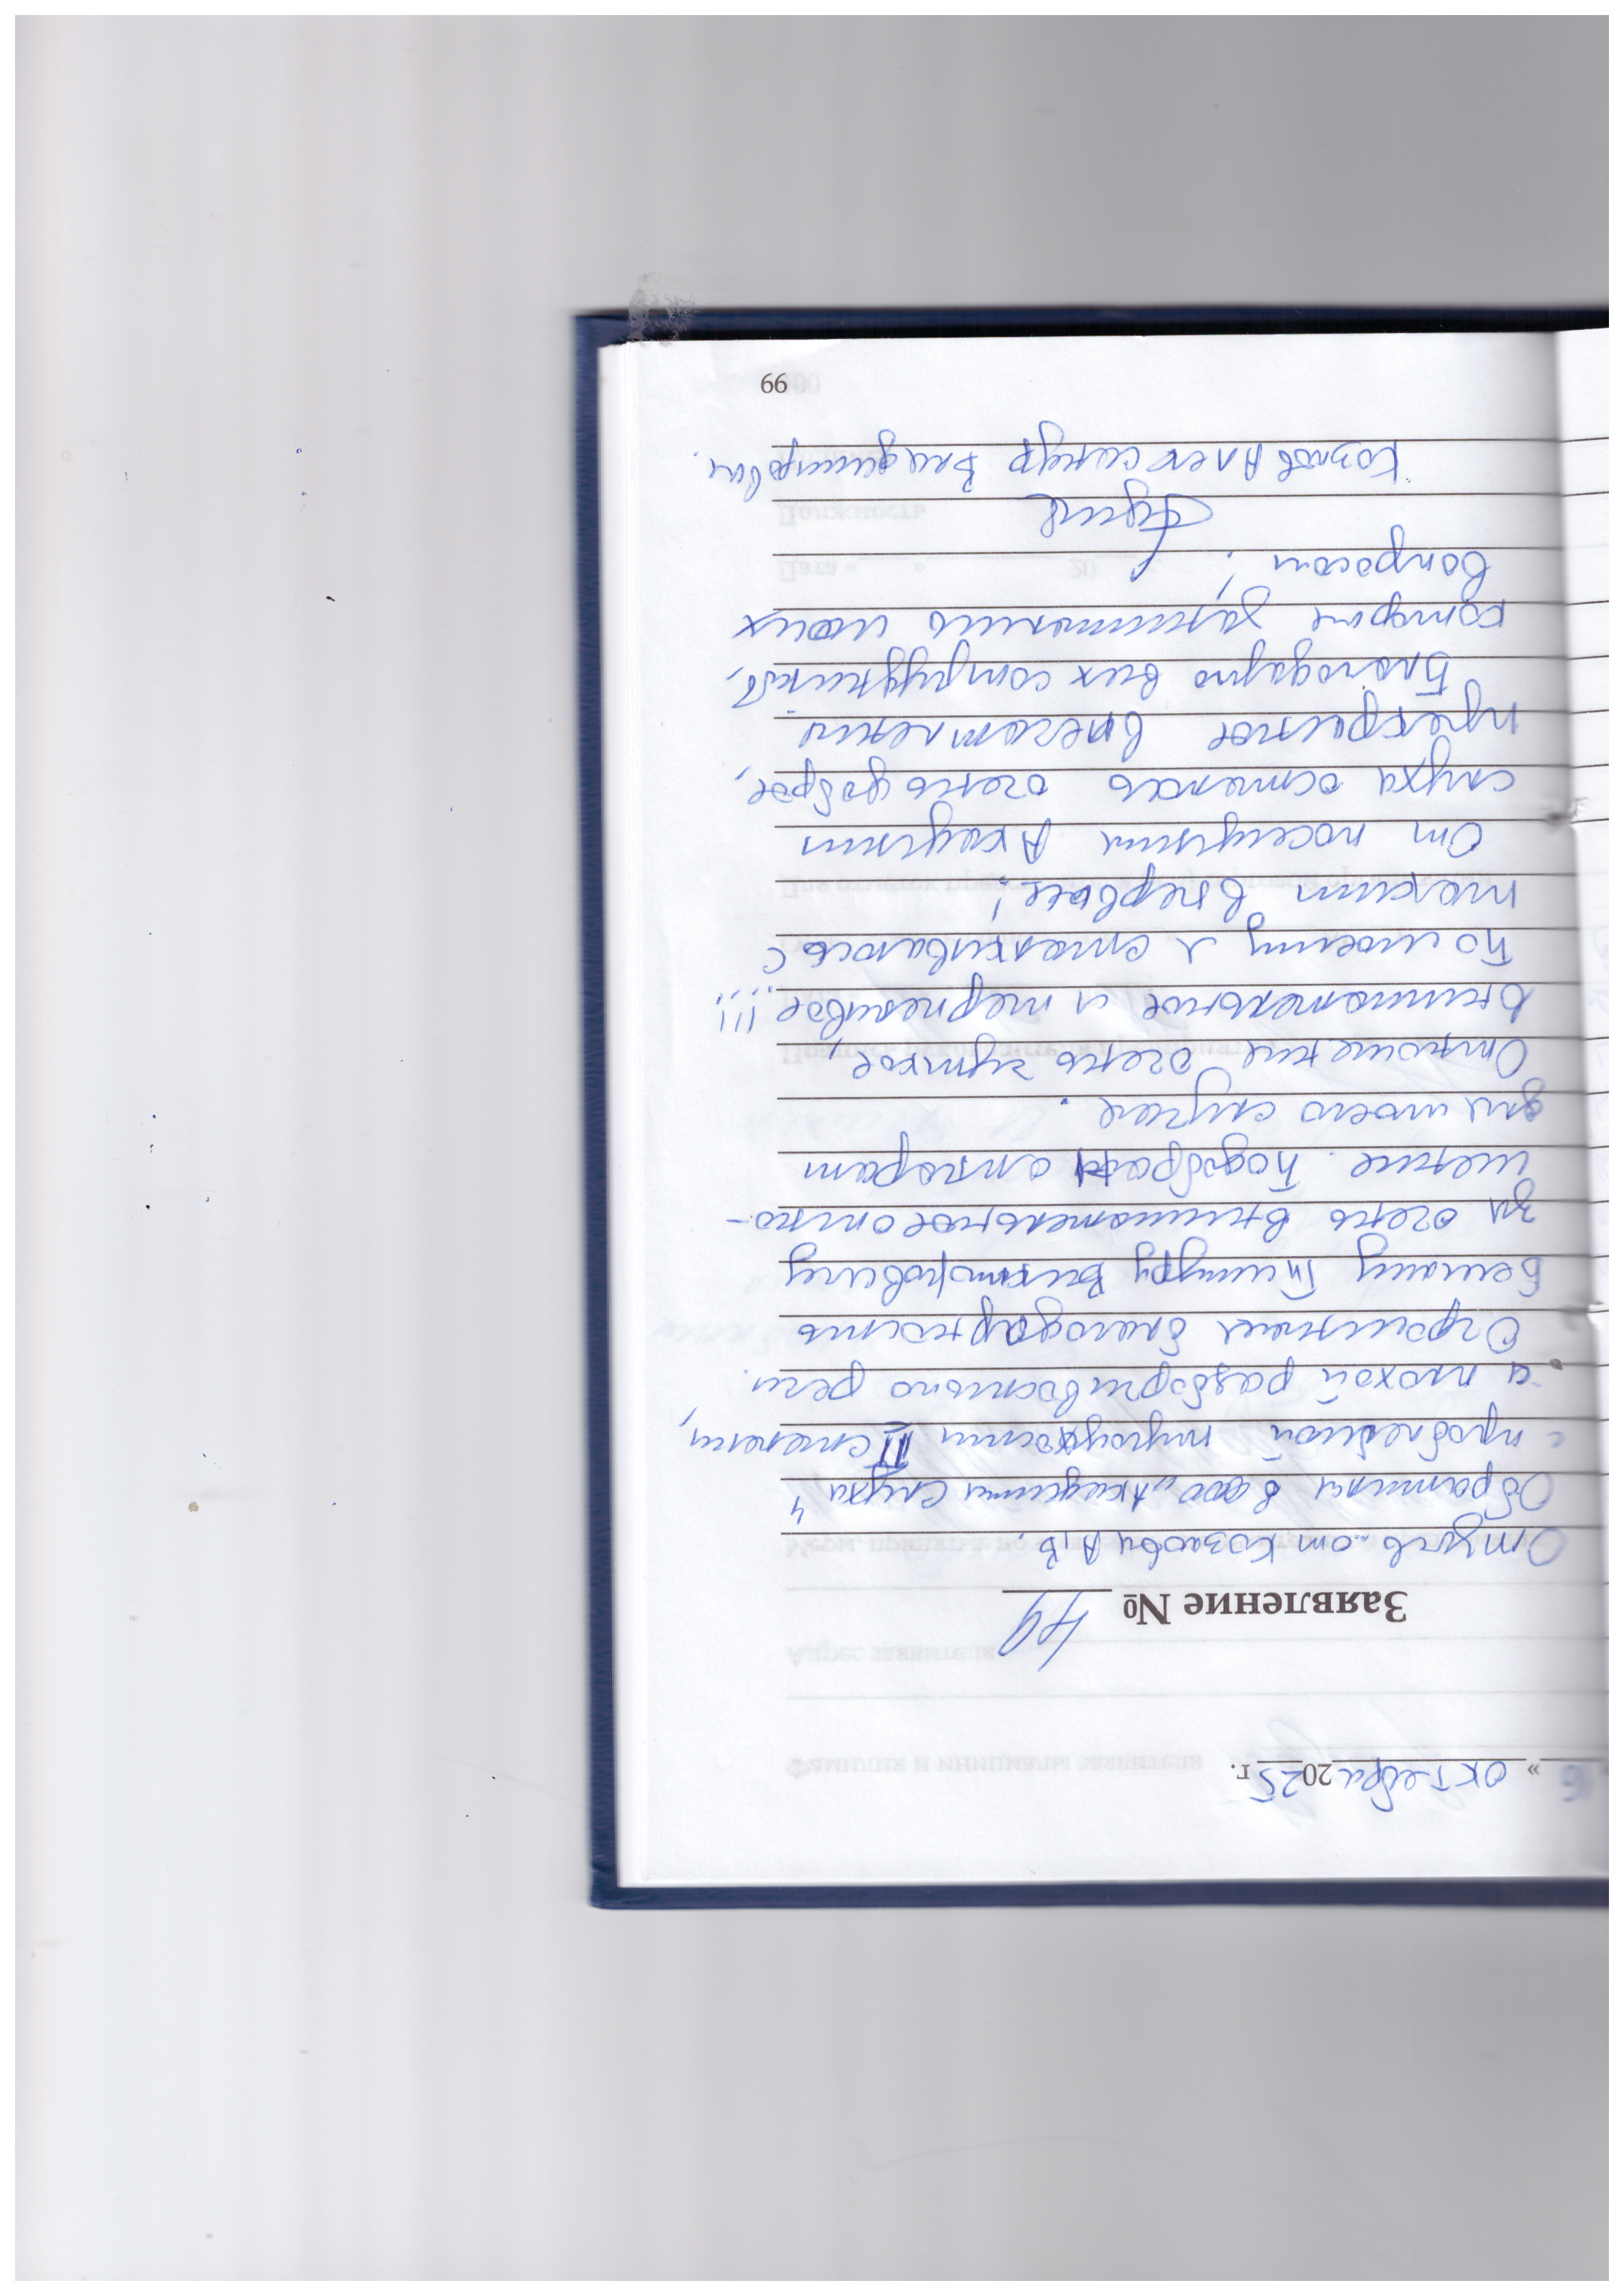 16 » октября 2025 г.
Заявление № 49
Отзыв от Козлова А.В.
Обратился в ООО „Академия Слуха"
с проблемой тугоухости II степени,
и плохой разборчивостью речи.
Огромная благодарность
Тимуру Викторовичу
за очень внимательное отно-
шение. Подобрал аппарат
для моего случае.
Отношение очень чуткое,
внимательное и терпеливое!!!
По моему я сталкиваюсь с
таким впервые!
От посещения Академии
слуха осталось очень доброе,
прекрасное впечатление
Благодарю всех сотрудников,
которые занимались моих
вопросом.
Козлов Александр Владимирович.
66